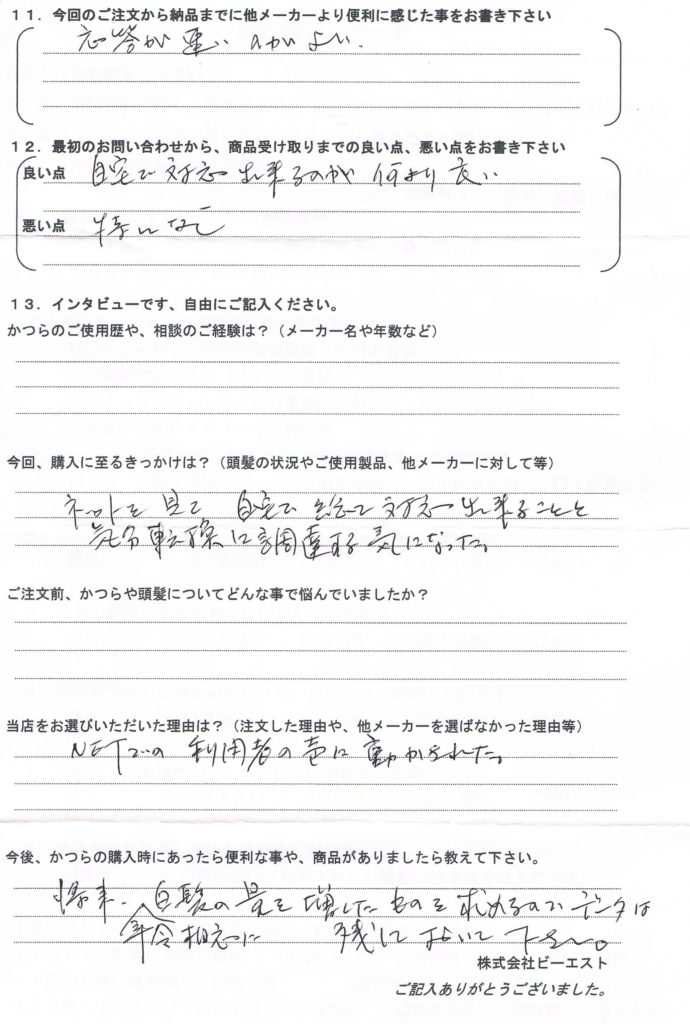 １１．今回のご注文から納品までに他メーカーより便利に感じた事をお書き下さい
応答が速いのがよい.
１２．最初のお問い合わせから、商品受け取りまでの良い点、悪い点をお書き下さい
良い点 自宅で対応出来るのが何より良い
悪い点 特になし
１３．インタビューです、自由にご記入ください。
かつらのご使用歴や、相談のご経験は？（メーカー名や年数など）
今回、購入に至るきっかけは？（頭髪の状況やご使用製品、他メーカーに対して等）
ネットを見て 自宅で 総て対応出来ることと
気分転換に調達する気になった。
ご注文前、かつらや頭髪についてどんな事で悩んでいましたか？
当店をお選びいただいた理由は？（注文した理由や、他メーカーを選ばなかった理由等）
NETでの利用者の声に動かされた。
今後、かつらの購入時にあったら便利な事や、商品がありましたら教えて下さい。
将来、白髪の量を増したものを求めるのでデータは
年令相応に 残しておいて下さい。
株式会社ビーエスト
ご記入ありがとうございました。